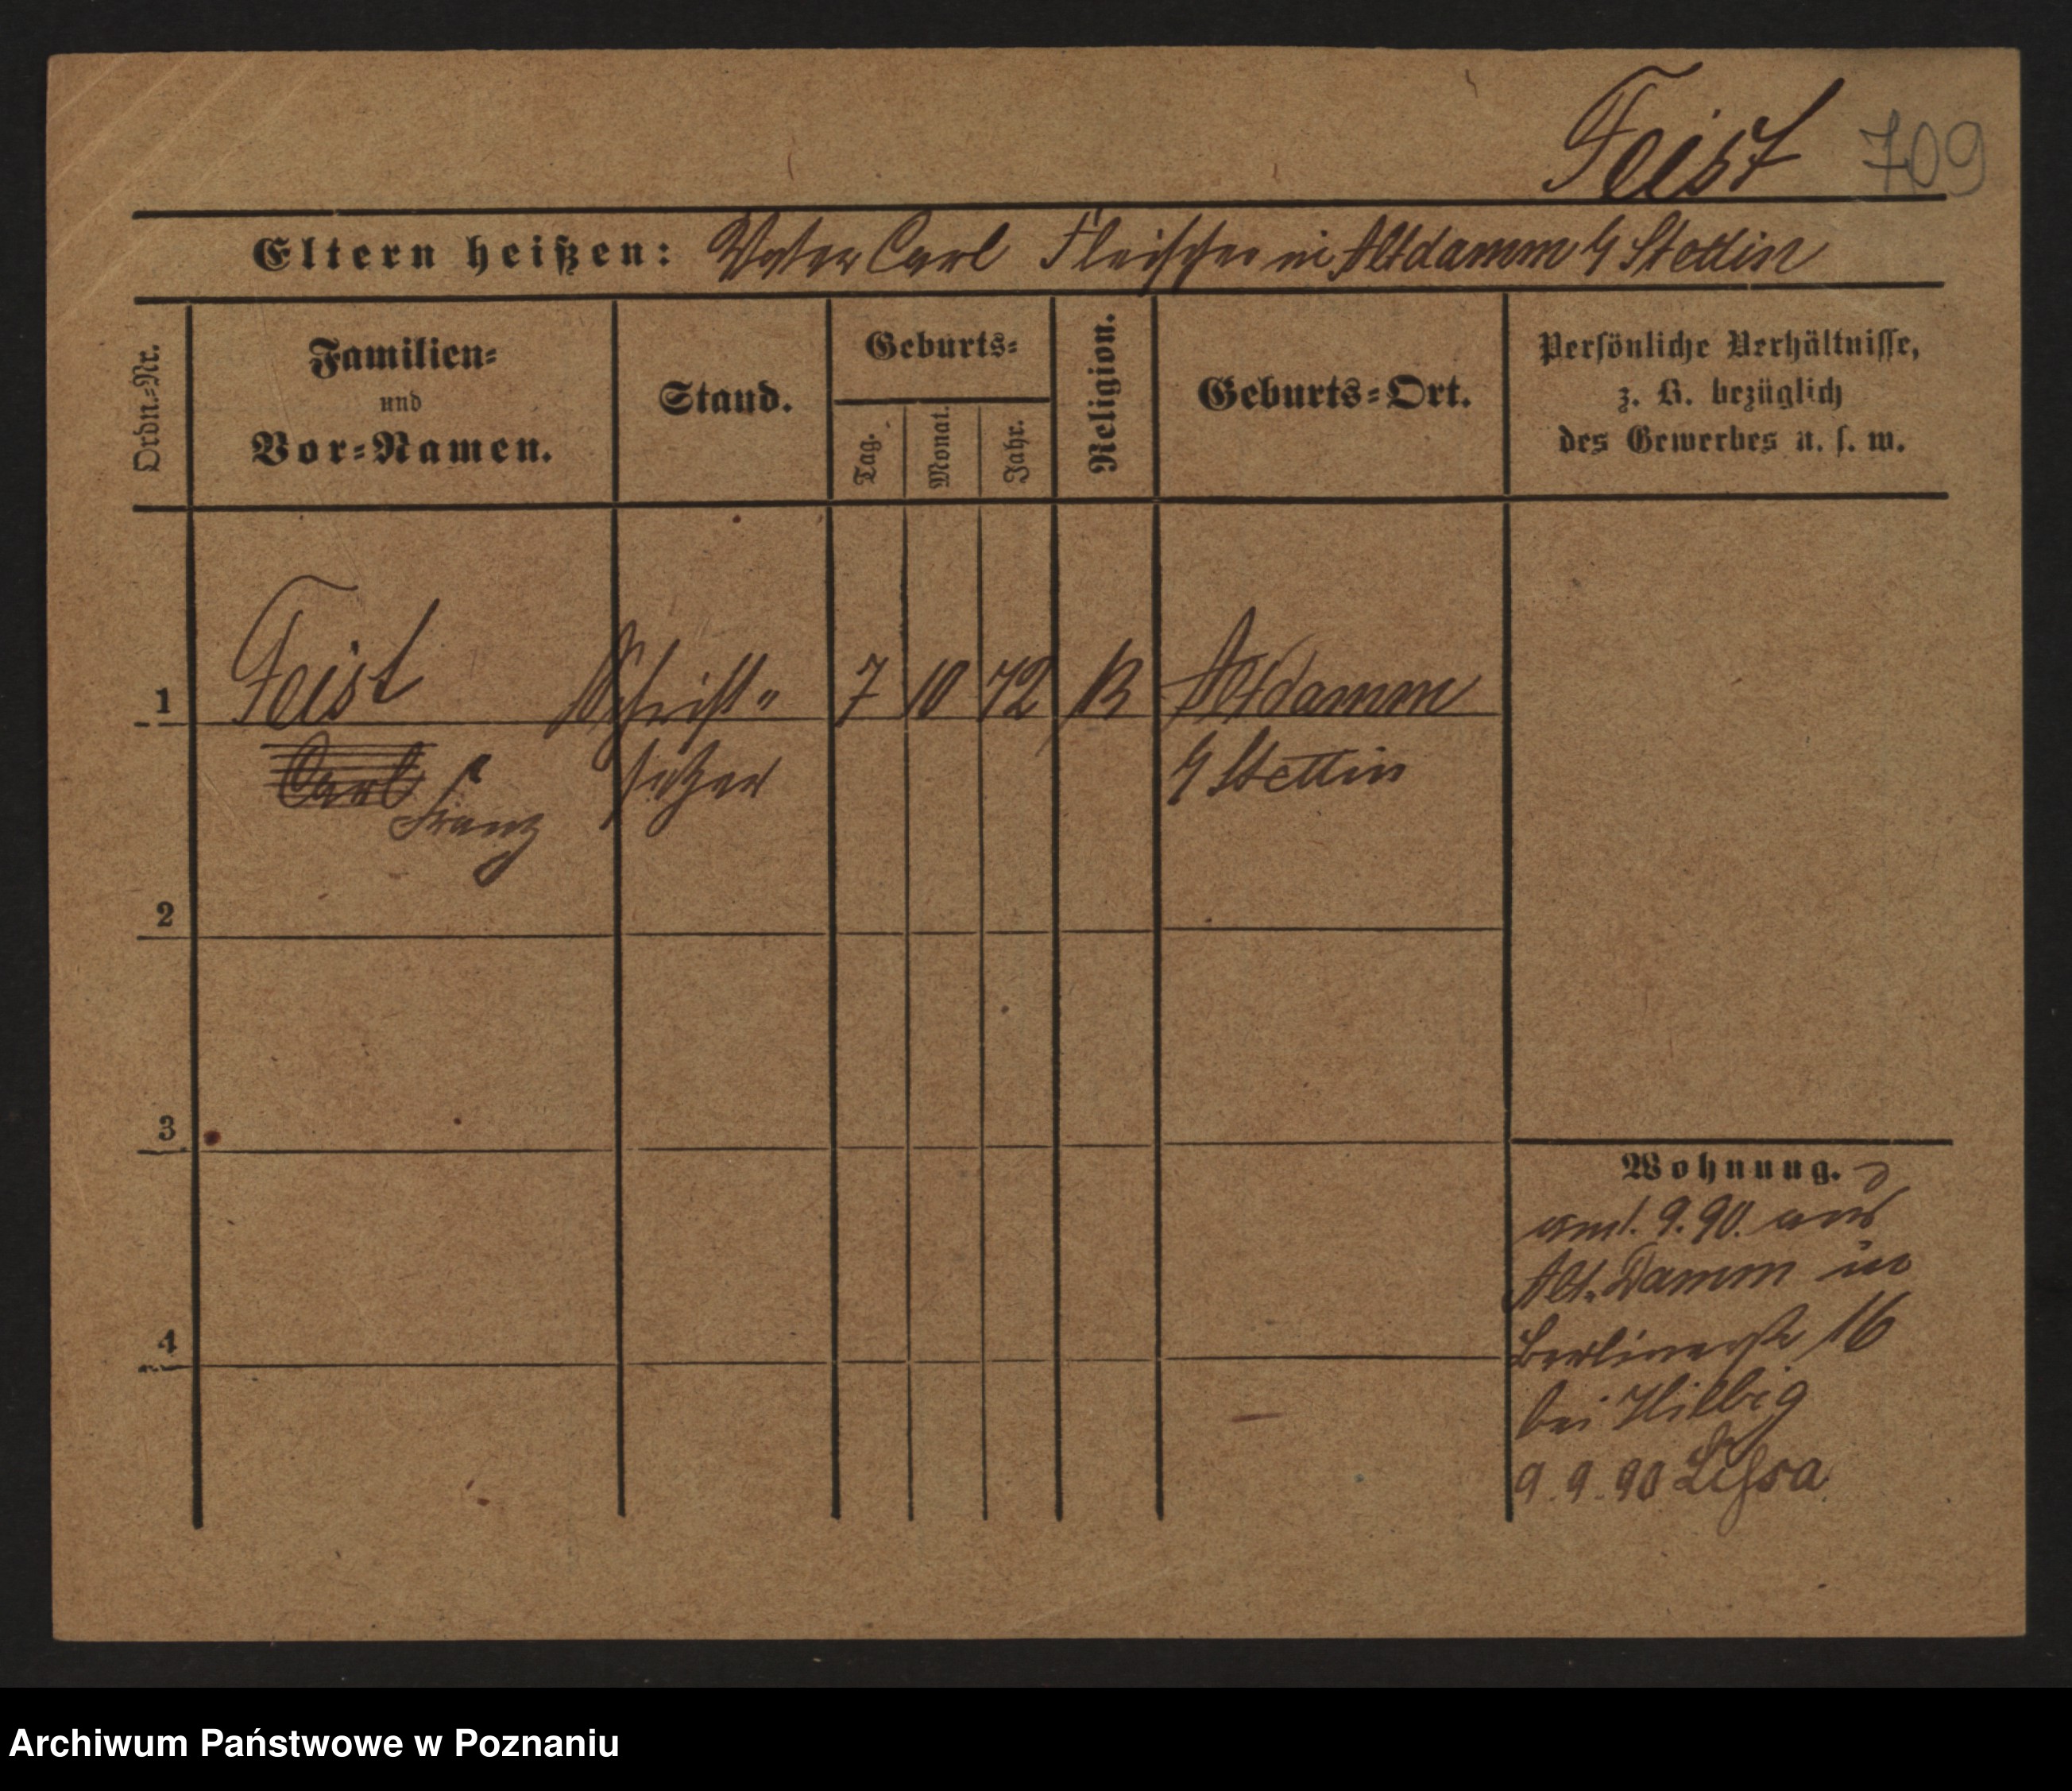 Feist 709
Eltern heißen: Vater Carl Fleischer in Altdamm b/ Stettin
Ordn.-Nr.
Familien-
und
Vor-Namen.
Stand.
Geburts-
Tag.
Monat.
Jahr.
Religion.
Geburts-Ort.
Persönliche Verhältnisse,
z. B. bezüglich
des Gewerbes u. s. w.
1 Feist Schrift- 7 10 72 Altdamm
Carl Franz setzer b/ Stettin
2
3
4
Wohnung.
am 1. 9. 90. aus
Alt-Damm in
Berlinerstr 16
bei Hilbig
9. 9. 90 Lissa
Archiwum Państwowe w Poznaniu